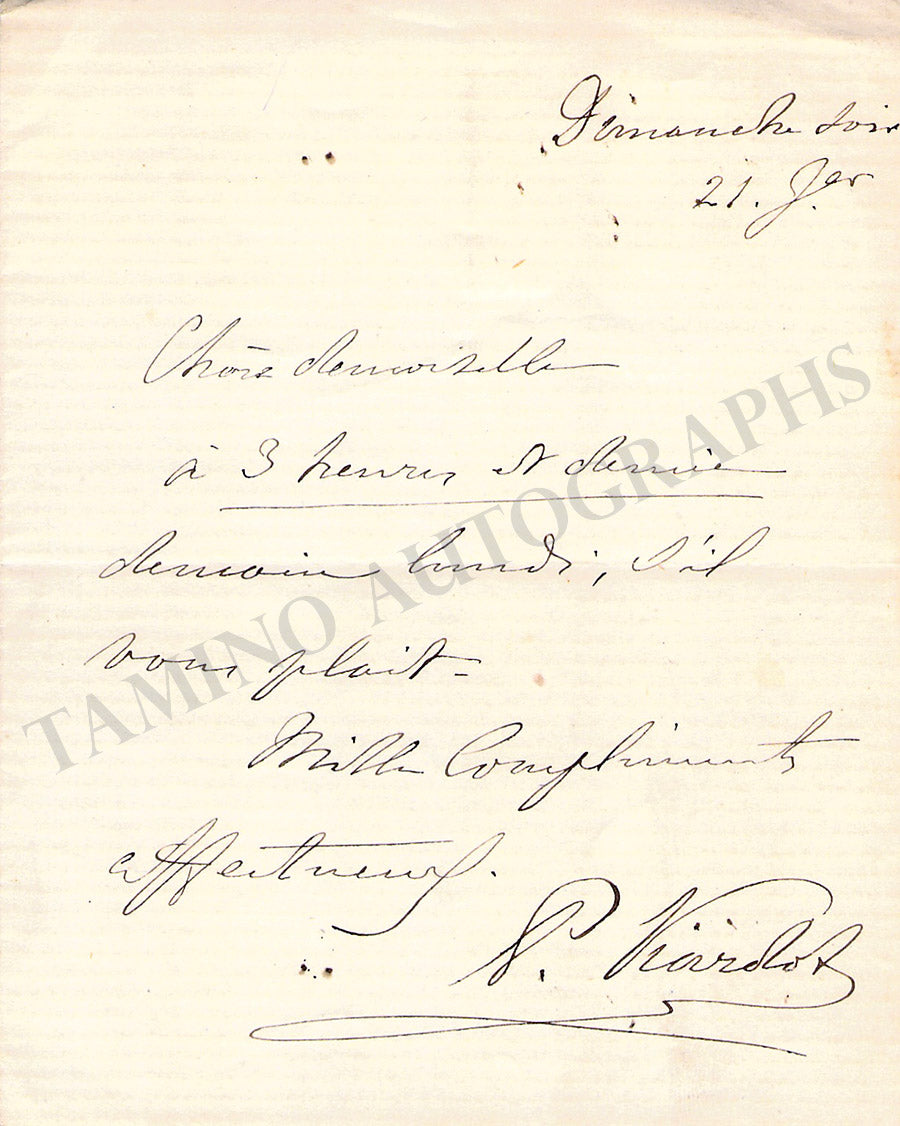 Dimanche soir
21. Jer
Chère demoiselle
à 3 heures et demie
demain lundi, s'il
vous plait -
Mille Compliments
affectueux.
P. Viardot
TAMINO AUTOGRAPHS